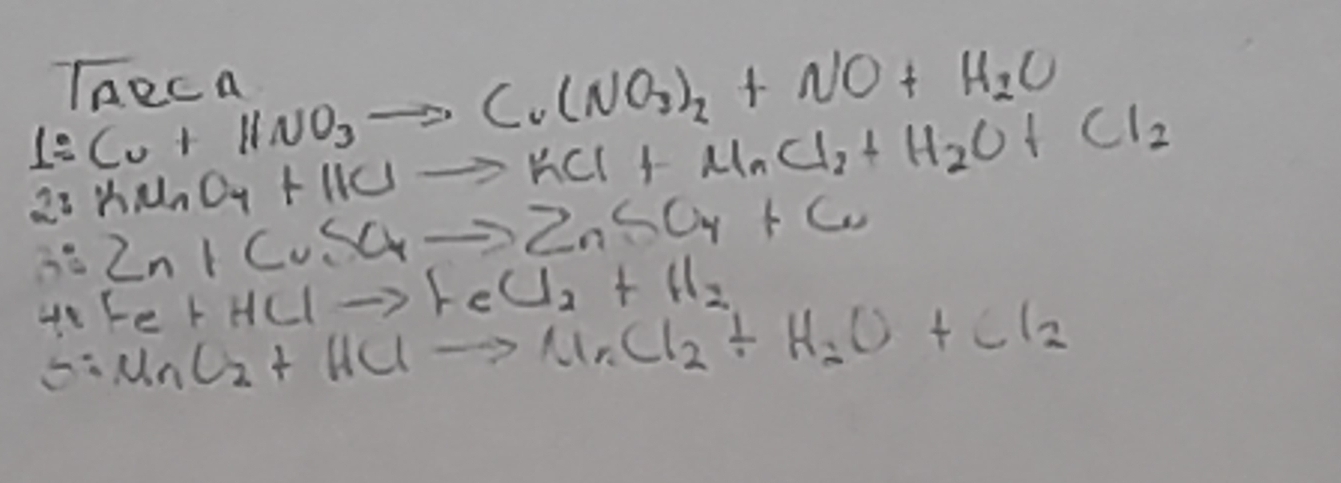 Tarea
1: Cu + HNO₃ → Cu(NO₃)₂ + NO + H₂O
2: KMnO₄ + HCl → KCl + MnCl₂ + H₂O + Cl₂
3: Zn + CuSO₄ → ZnSO₄ + Cu
4: Fe + HCl → FeCl₂ + H₂
5: MnO₂ + HCl → MnCl₂ + H₂O + Cl₂